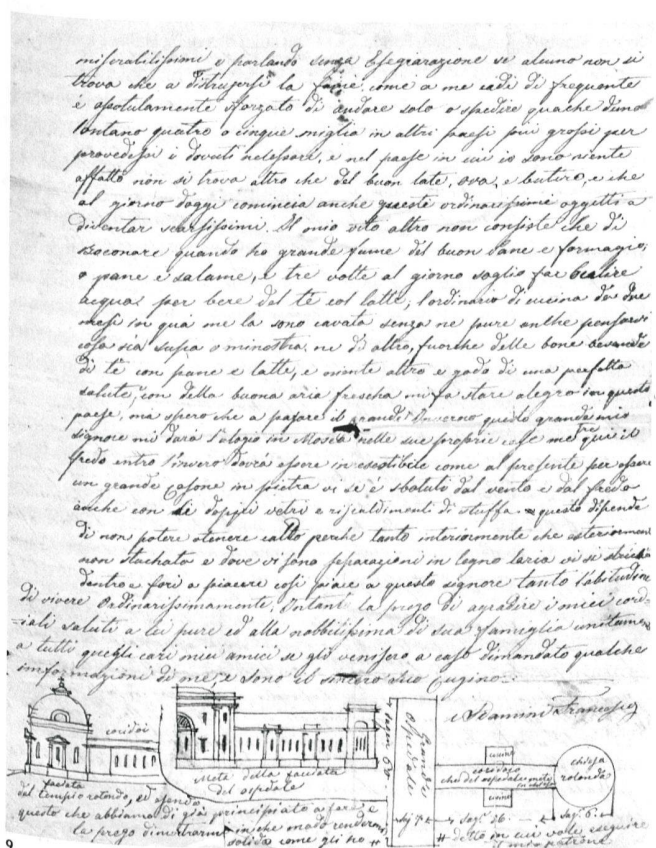 miserabilissimi e parlando senza esegrarazione se aluno non si
trova che a distrugersi la fame come a me cade di frequente
è assolutamente sforzato di andare solo o spedire quache d'uno
lontano quatro o cinque miglia in altri paesi più grossi per
provedersi i dovuti necessari, e nel paese in cui io sono niente
affatto non si trova altro che del buon late, ova, e butiro, e che
al giorno doggi comincia anche queste ordinarissime oggetti a
diventar scarsissimi. Il mio vito altro non consiste che di
boconare quando ho grande fame del buon pane e formagio,
o pane e salame, e tre volte al giorno soglio far bolire
acqua per bere del tè col latte, l'ordinario di cucina da due
mesi in quà me la sono cavata senza ne pure anche pensarsi
cosa sia supa o minestra, ne di altro, fuorche delle bone bevande
di tè con pane e latte, e niente altro e godo di una perfetta
salute, con della buona aria frescha mi fa stare alegro in questo
paese, ma spero che a pasare il grande Inverno questo grande mio
signore mi darà l'alogio in Mosca nelle sue proprie case mentre qui il
fredo entro l'invero dovrà essere inesestibile come al presente per essere
un grande Casone in pietra vi si è sbatuti dal vento e dal fredo
anche con le doppie vetri e riscaldimenti di stuffa, questo dipende
di non potere otenere caldo perche tanto interiormente che esteriormen
non stachato e dove vi sono separazioni in legno laria vi si
dentro e fori a piacere così piace a questo signore tanto l'abitudine
di vivere Ordinarissimamente. Intant la prego di agradire i miei cord-
-iali saluti a lei pure ed alla nobbilissima di sua famiglia unitame
a tutti quegli cari miei amici se gli venisero a caso dimandato qualche
informazioni di me, e sono il sincero suo Cugino.
Francesco
coridoi
faciata
del tempio rotondo, ed essendo
questo che abbiamo di già principiato a farsi e
la prego di
Metà della faciata
del ospedale
in che modo rendermi
solida come gli ho #
Grande
Ospedale
cucina
coridoio
che del ospedale mete
cucina
chiesa
rotonda
Saj. 7
Saj. 26.
Saj. 6.
# detto in cui vole eseguire
il mio patrone
9